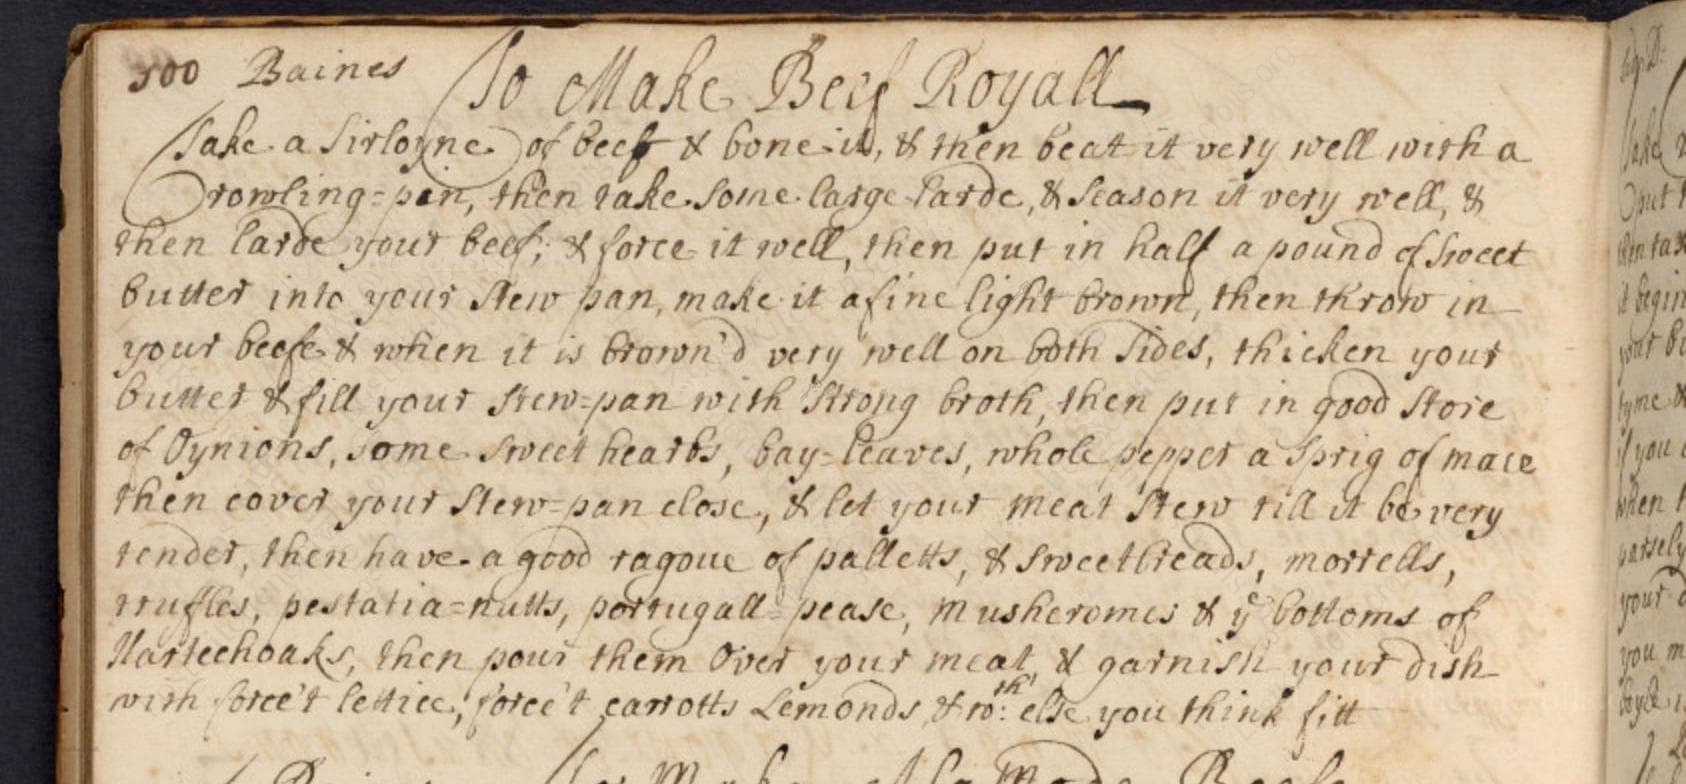 500 Baines To Make Beef Royall
Take a Sirloyne of beef & bone it, & then beat it very well with a
rowling=pin, then take some large larde, & season it very well, &
then larde your beef; & force it well, then put in half a pound of sweet
butter into your stew pan, make it a fine light brown, then throw in
your beefe & when it is brown'd very well on both sides, thicken your
butter & fill your stew=pan with strong broth, then put in good store
of Oynions, some sweet hearbs, bay=leaves, whole pepper a sprig of mace
then cover your stew=pan close, & let your meat stew till it be very
tender, then have a good ragoue of palletts, & sweetbreads, morrells,
truffles, pestatia=nutts, portugall=pease, musheromes & yͤ bottoms of
Hartechoaks, then pour them over your meat, & garnish your dish
with force't lettice, force't carrotts Lemonds, & w:th else you think fitt
To Make Alamode Beefe